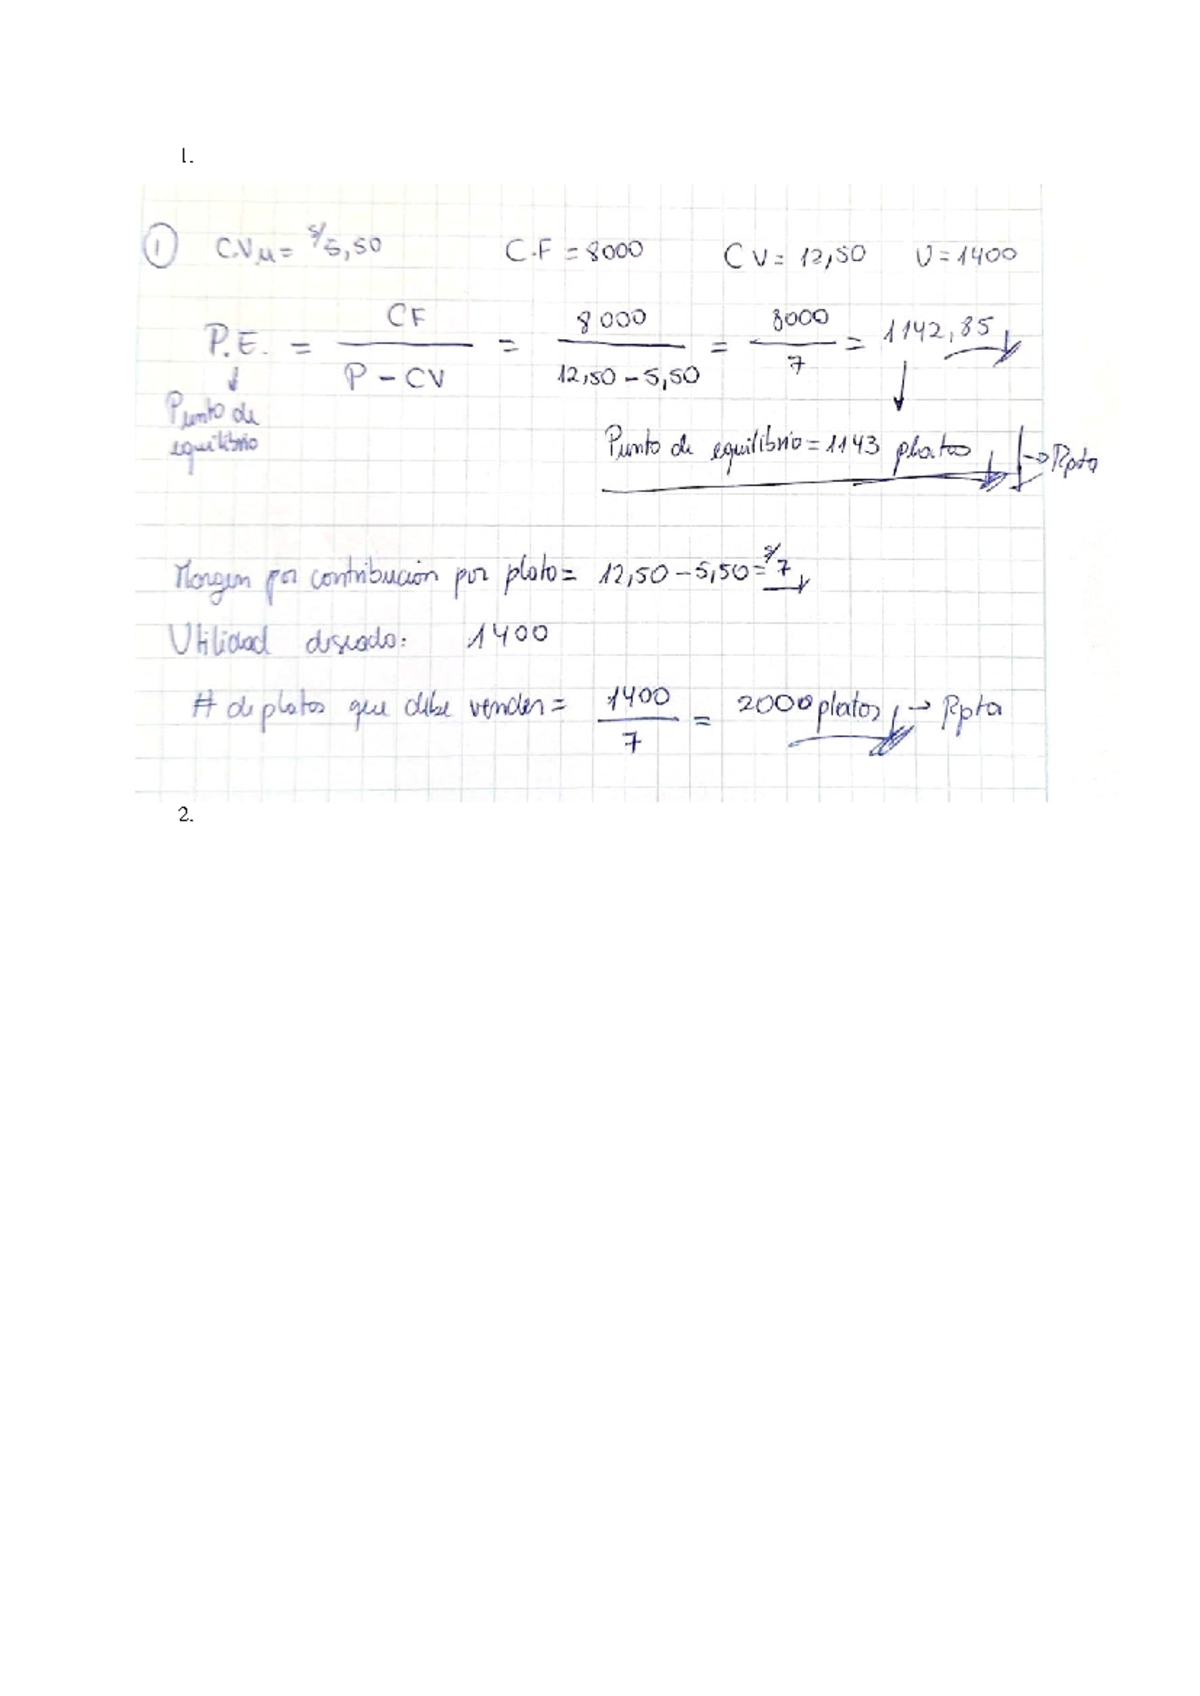 1.
① C.Vu = S/5,50 C.F = 8000 CV = 12,50 U = 1400
P.E. = CF / P - CV = 8000 / 12,50 - 5,50 = 8000 / 7 = 1142,85
↓
Punto de
equilibrio
Punto de equilibrio = 1143 platos → Rpta
Margen por contribución por plato = 12,50 - 5,50 = S/7
Utilidad deseado: 1400
# de platos que debe vender = 1400 / 7 = 2000 platos → Rpta
2.